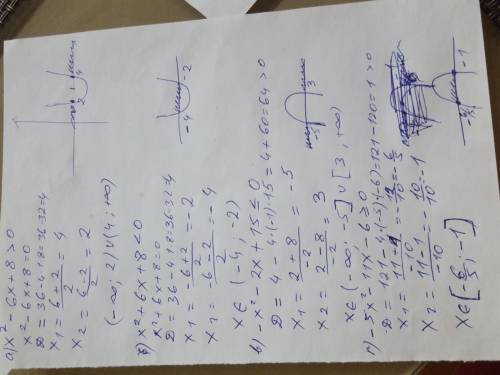 а) x² - 6x + 8 > 0
x² - 6x + 8 = 0
D = 36 - 4·8 = 36-32 = 4
x₁ = (6+2)/2 = 4
x₂ = (6-2)/2 = 2
2 4
(-∞; 2) ∪ (4; +∞)
б) x² + 6x + 8 < 0
x² + 6x + 8 = 0
D = 36 - 4·8 = 36-32 = 4
x₁ = (-6+2)/2 = -2
x₂ = -(6-2)/2 = -4
-4 -2
x ∈ (-4; -2)
в) -x² - 2x + 15 ≤ 0
D = 4 - 4·(-1)·15 = 4 + 60 = 64 > 0
x₁ = (2+8)/-2 = -5
x₂ = (2-8)/-2 = 3
-5 3
x ∈ (-∞; -5] ∪ [3; +∞)
г) -5x² - 11x - 6 ≥ 0
D = 121 - 4·(-5)·(-6) = 121 - 120 = 1 > 0
x₁ = (11+1)/-10 = -12/10 = -6/5
x₂ = (11-1)/-10 = -10/10 = -1
-6/5 -1
x ∈ [-6/5; -1]